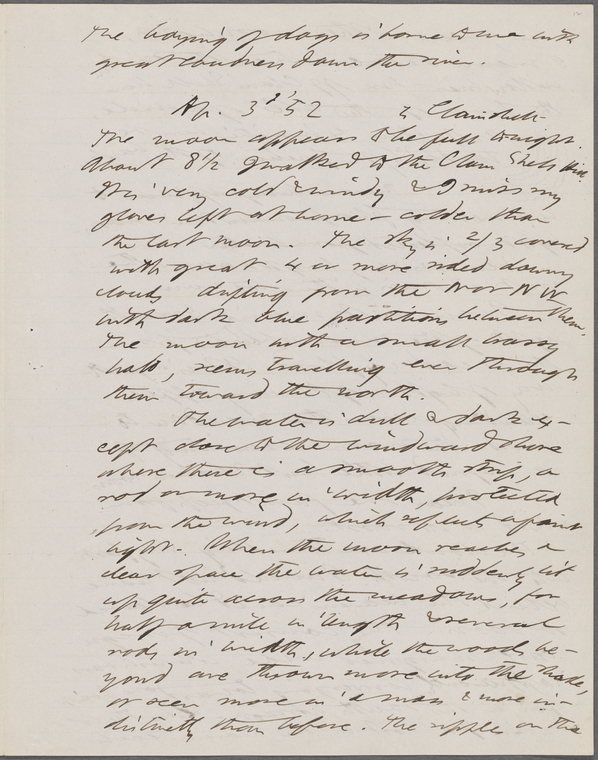 The baying of dogs is borne to me with
great loudness down the river.
Ap. 3d '52 to Clamshell
The moon appears to be full tonight.
About 8 1/2 I walked to the Clam Shell Hill.
It is very cold & windy & I miss my
gloves left at home - colder than
the last moon. The sky is 2/3 covered
with great 4 or more sided downy
clouds drifting from the N or NW
with dark blue partitions between them.
The moon with a small brassy
halo, seems travelling ever through
them toward the north.
The water is dull & dark ex-
cept close to the windward shore
where there is a smooth strip, a
rod or more in width, protected
from the wind, which reflects a faint
light. When the moon reaches a
clear space the water is suddenly lit
up quite across the meadows, for
half a mile in length & several
rods in width, while the woods be-
yond are thrown more into the shade,
or seen more in a mass & more in-
distinctly than before. The ripple on the